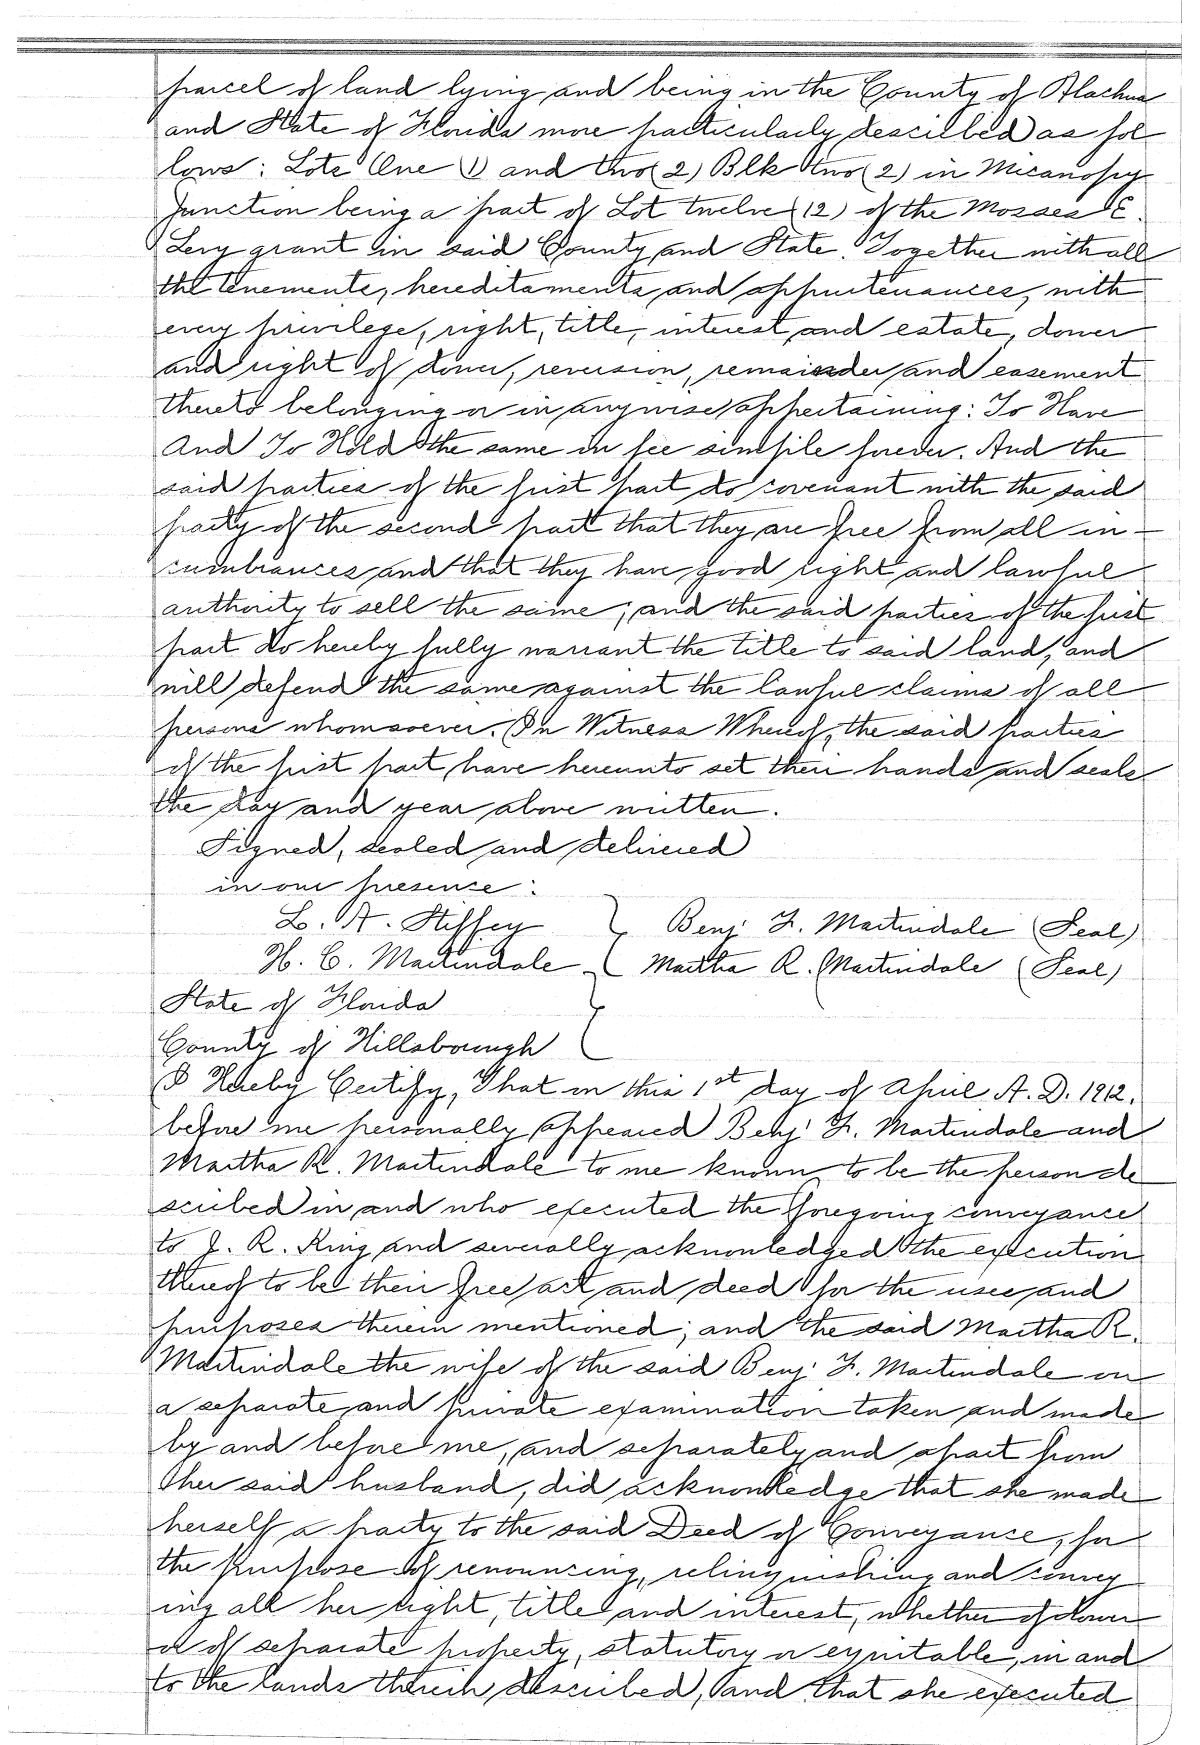 parcel of land lying and being in the County of Alachua
and State of Florida more particularly described as fol
lows: Lots One (1) and two (2) Blk two (2) in Micanopy
Junction being a part of Lot twelve (12) of the Mosses E.
Levy grant in said County and State. Together with all
the tenements, hereditaments and appurtenances, with
every privilege, right, title, interest and estate, dower
and right of dower, reversion, remainder and easement
thereto belonging or in anywise appertaining: To Have
And To Hold the same in fee simple forever. And the
said parties of the first part do covenant with the said
party of the second part that they are free from all in-
cumbrances and that they have good right and lawful
authority to sell the same; and the said parties of the first
part do hereby fully warrant the title to said land, and
will defend the same against the lawful claims of all
persons whomsoever. In Witness Whereof, the said parties
of the first part, have hereunto set their hands and seals
the day and year above written.
Signed, sealed and delivered
in our presence:
L. A. Stiffey } Benj. F. Martindale (Seal)
H. C. Martindale { Martha R. Martindale (Seal)
State of Florida
County of Hillsborough }
I Hereby Certify, That on this 1st day of April A. D. 1912,
before me personally appeared Benj. F. Martindale and
Martha R. Martindale to me known to be the person de
scribed in and who executed the foregoing conveyance
to J. R. King and severally acknowledged the execution
thereof to be their free act and deed for the uses and
purposes therein mentioned; and the said Martha R.
Martindale the wife of the said Benj. F. Martindale on
a separate and private examination taken and made
by and before me, and separately and apart from
her said husband, did acknowledge that she made
herself a party to the said Deed of Conveyance, for
the purpose of renouncing, relinquishing and convey
ing all her right, title and interest, whether of dower
or of separate property, statutory or equitable, in and
to the lands therein described, and that she executed